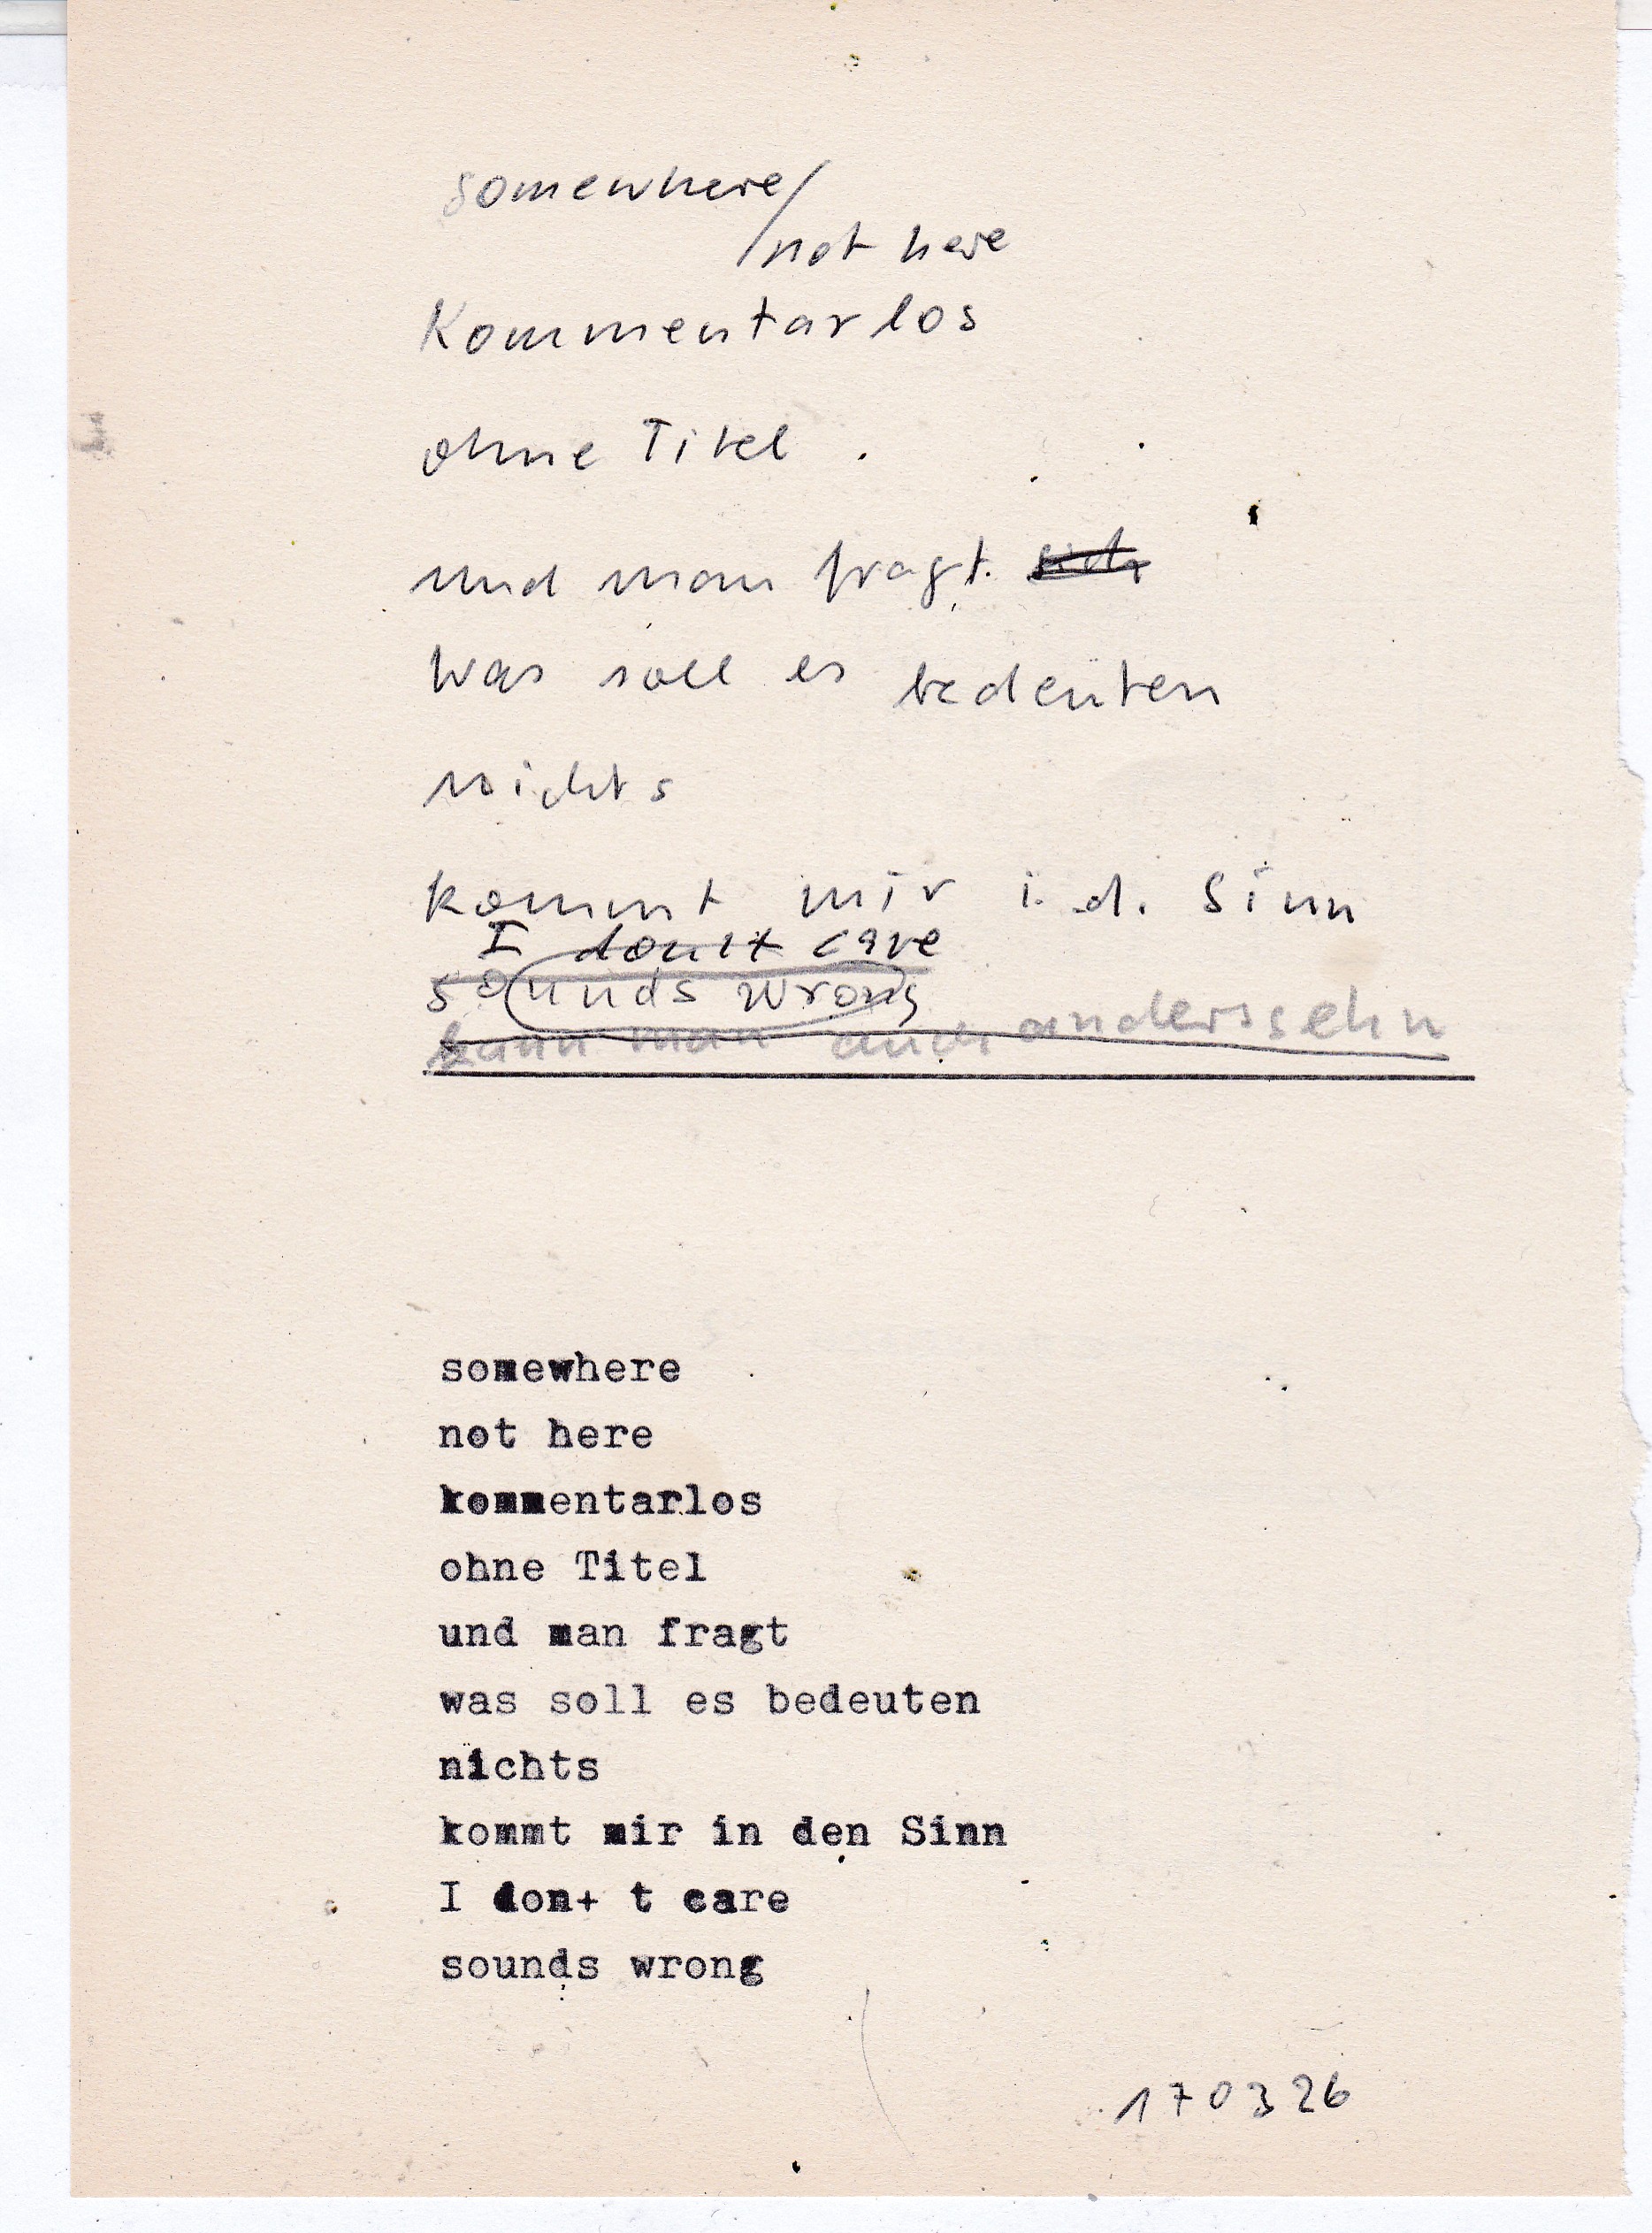 somewhere/
not here
Kommentarlos
ohne Titel.
und man fragt. sich
Was soll es bedeuten
nichts
kommt mir i. d. Sinn
I don't care
sounds wrong
kann man auch anderssehn
somewhere
not here
kommentarlos
ohne Titel
und man fragt
was soll es bedeuten
nichts
kommt mir in den Sinn
I don+ t care
sounds wrong
170326